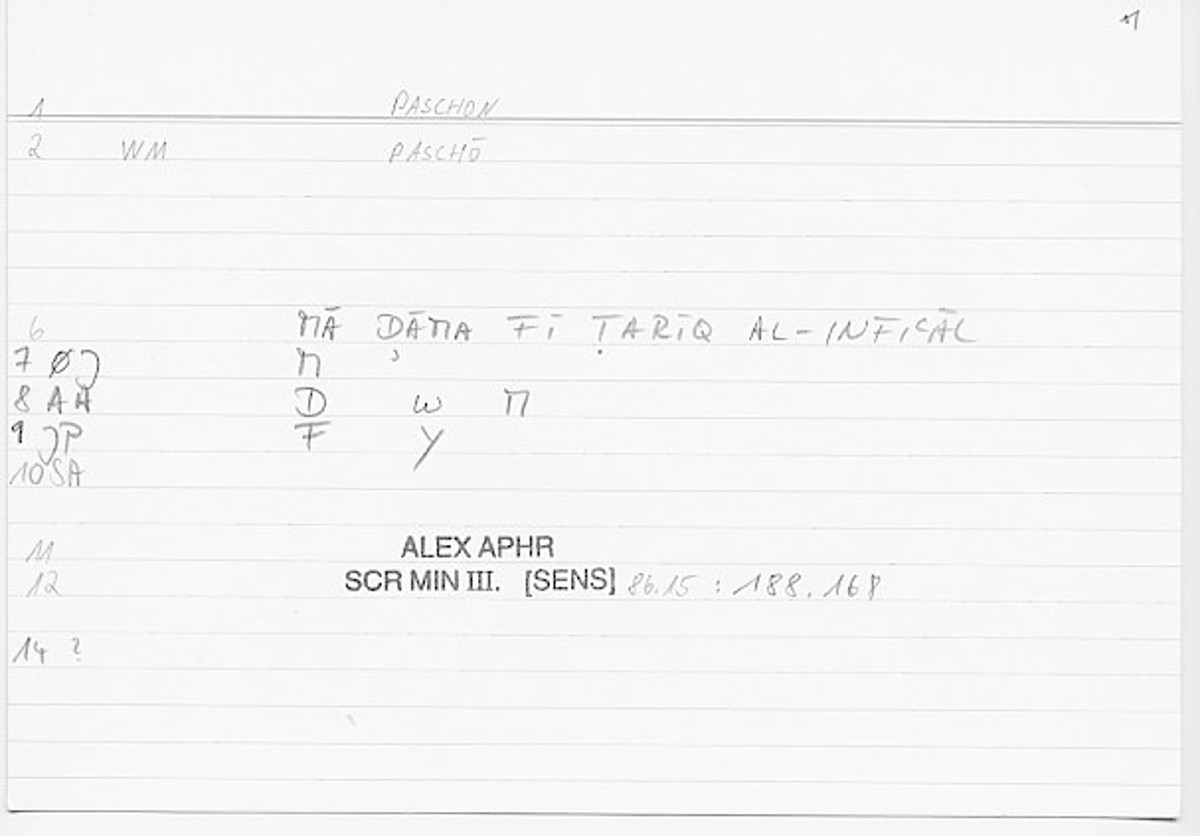 1
1 PASCHON
2 WM PASCHŌ
6 MĀ DĀMA FĪ ṬARĪQ AL-INFIʿĀL
7 ØJ M ʾ
8 AA D W M
9 JP F Y
10 SA
11 ALEX APHR
12 SCR MIN III. [SENS] 86.15 : 188.168
14 ?